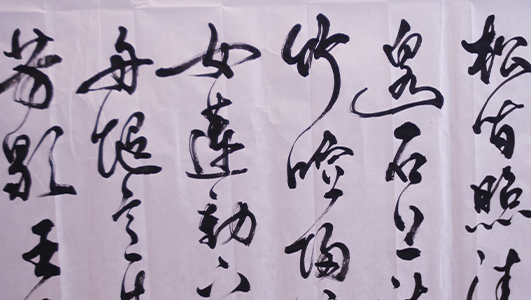 松間照清
泉石上
竹喧歸
女蓮動下
舟隨意
芳歇王